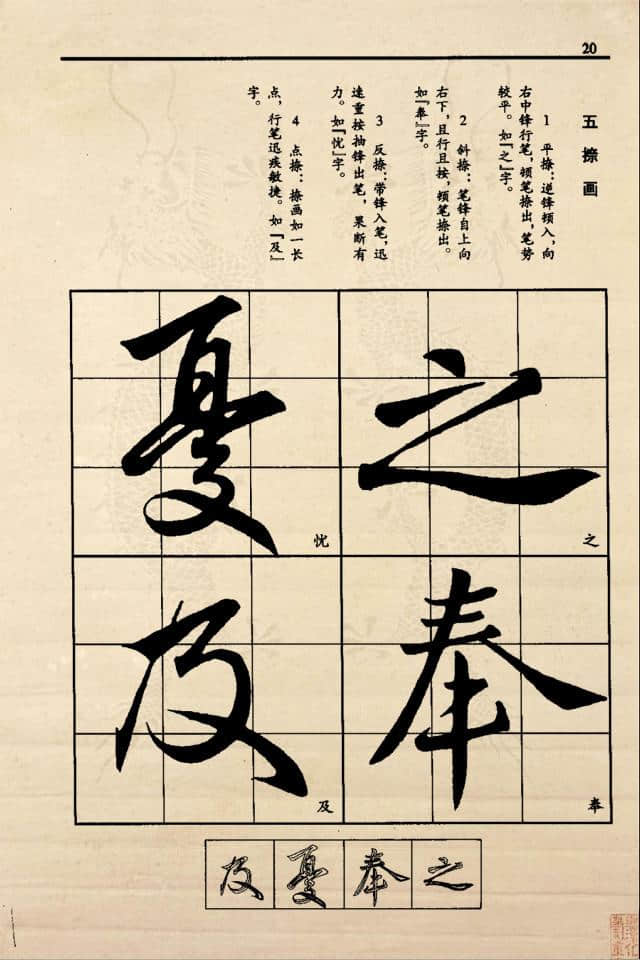 20
五 捺 画
1 平捺：逆锋顿入，向
右中锋行笔，顿笔捺出，笔势
较平。如『之』字。
2 斜捺：笔锋自上向
右下，且行且按，顿笔捺出。
如『奉』字。
3 反捺：带锋入笔，迅
速重按抽锋出笔，果断有
力。如『忧』字。
4 点捺：捺画如一长
点，行笔迅疾敏捷。如『及』
字。
之
之
奉
奉
憂
忧
及
及
之奉憂及